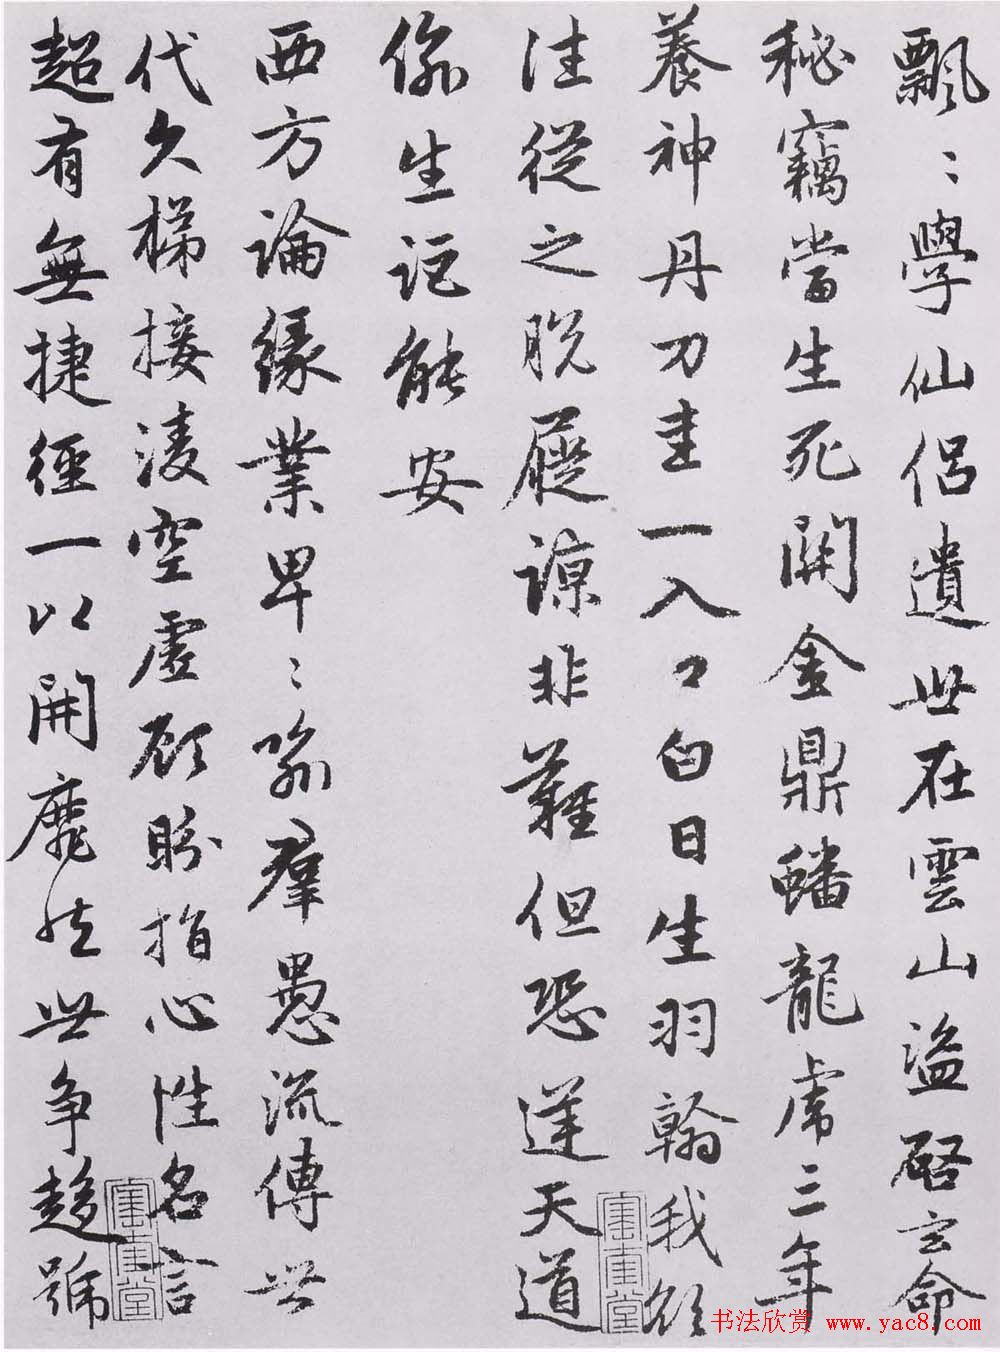 飄〻學仙侣遺世在雲山盜啓玄命
秘竊當生死關金鼎蟠龍虎三年
養神丹刀圭一入口白日生羽翰我欲
往從之脱屣諒非難但恐逆天道
偷生詎能安
西方論緣業卑〻喻羣愚流傳世
代久梯接淩空虛顧盼指心性名言
超有無捷徑一以開靡然世争趨號
书法欣赏 www.yac8.com